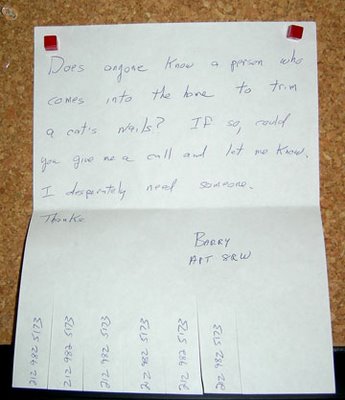 Does anyone know a person who
comes into the home to trim
a cat's nails? If so, could
you give me a call and let me know.
I desperately need someone.
Thanks
BARRY
APT 8RW
212 982 5173
212 982 5173
212 982 5173
212 982 5173
212 982 5173
212 982 5173